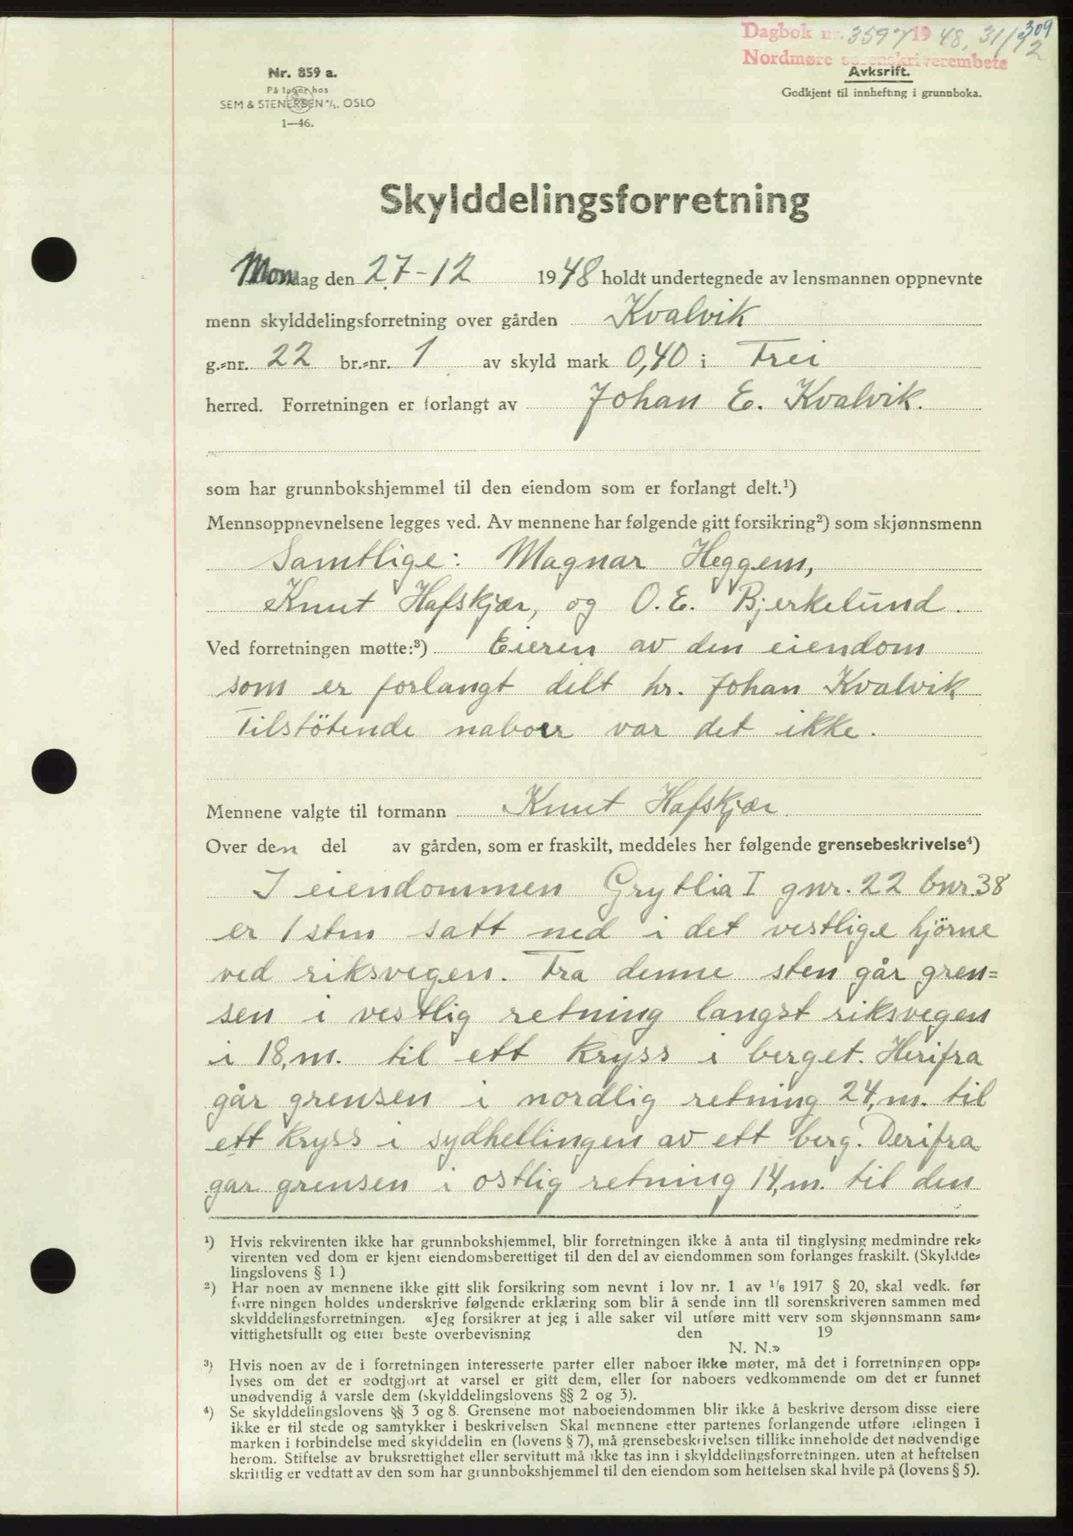 309
Dagbok nr. 3597 1948, 31/12
Nordmøre sorenskriverembete
Nr. 859 a.
På lager hos
SEM & STENERSEN A/S. OSLO
1—46.
Avksrift.
Godkjent til innhefting i grunnboka.
Skylddelingsforretning
Mondag den 27-12 1948 holdt undertegnede av lensmannen oppnevnte
menn skylddelingsforretning over gården Kvalvik
g.=nr. 22 br.=nr. 1 av skyld mark 0,40 i Frei
herred. Forretningen er forlangt av Johan E. Kvalvik.
som har grunnbokshjemmel til den eiendom som er forlangt delt.¹)
Mennsoppnevnelsene legges ved. Av mennene har følgende gitt forsikring²) som skjønnsmenn
Samtlige: Magnar Heggem,
Knut Hafskjær, og O. E. Bjerkelund.
Ved forretningen møtte:³) Eieren av den eiendom
som er forlangt delt hr. Johan Kvalvik
Tilstötende naboer var det ikke.
Mennene valgte til formann Knut Hafskjær.
Over den del av gården, som er fraskilt, meddeles her følgende grensebeskrivelse⁴)
I eiendommen Grytlia I gnr. 22 bnr. 38
er 1 sten satt ned i det vestlige hjörne
ved riksvegen. Fra denne sten går gren=
sen i vestlig retning langst riksvegen
i 18,m. til ett kryss i berget. Herifra
går grensen i nordlig retning 24,m. til
ett kryss i sydhellingen av ett berg. Derifra
går grensen i ostlig retning 14,m. til den
¹) Hvis rekvirenten ikke har grunnbokshjemmel, blir forretningen ikke å anta til tinglysing medmindre rek=
virenten ved dom er kjent eiendomsberettiget til den del av eiendommen som forlanges fraskilt. (Skyldde=
lingslovens § 1.)
²) Har noen av mennene ikke gitt slik forsikring som nevnt i lov nr. 1 av 1/6 1917 § 20, skal vedk. før
forretningen holdes underskrive følgende erklæring som blir å sende inn til sorenskriveren sammen med
skylddelingsforretningen. «Jeg forsikrer at jeg i alle saker vil utføre mitt verv som skjønnsmann sam=
vittighetsfullt og etter beste overbevisning den 19
N. N.»
³) Hvis noen av de i forretningen interesserte parter eller naboer ikke møter, må det i forretningen opp=
lyses om det er godtgjort at varsel er gitt dem, eller for naboers vedkommende om det er funnet
unødvendig å varsle dem (skylddelingslovens §§ 2 og 3).
⁴) Se skylddelingslovens §§ 3 og 8. Grensene mot naboeiendommen blir ikke å beskrive dersom disse eiere
ikke er til stede og samtykker i beskrivelsen Skal mennene etter partenes forlangende utføre delingen i
marken i forbindelse med skylddelingen (lovens § 7), må grensebeskrivelsen tillike inneholde det nødvendige
herom. Stiftelse av bruksrettighet eller servitutt må ikke tas inn i skylddelingsforretningen, uten at heftelsen
skriftlig er vedtatt av den som har grunnbokshjemmel til den eiendom som heftelsen skal hvile på (lovens § 5).